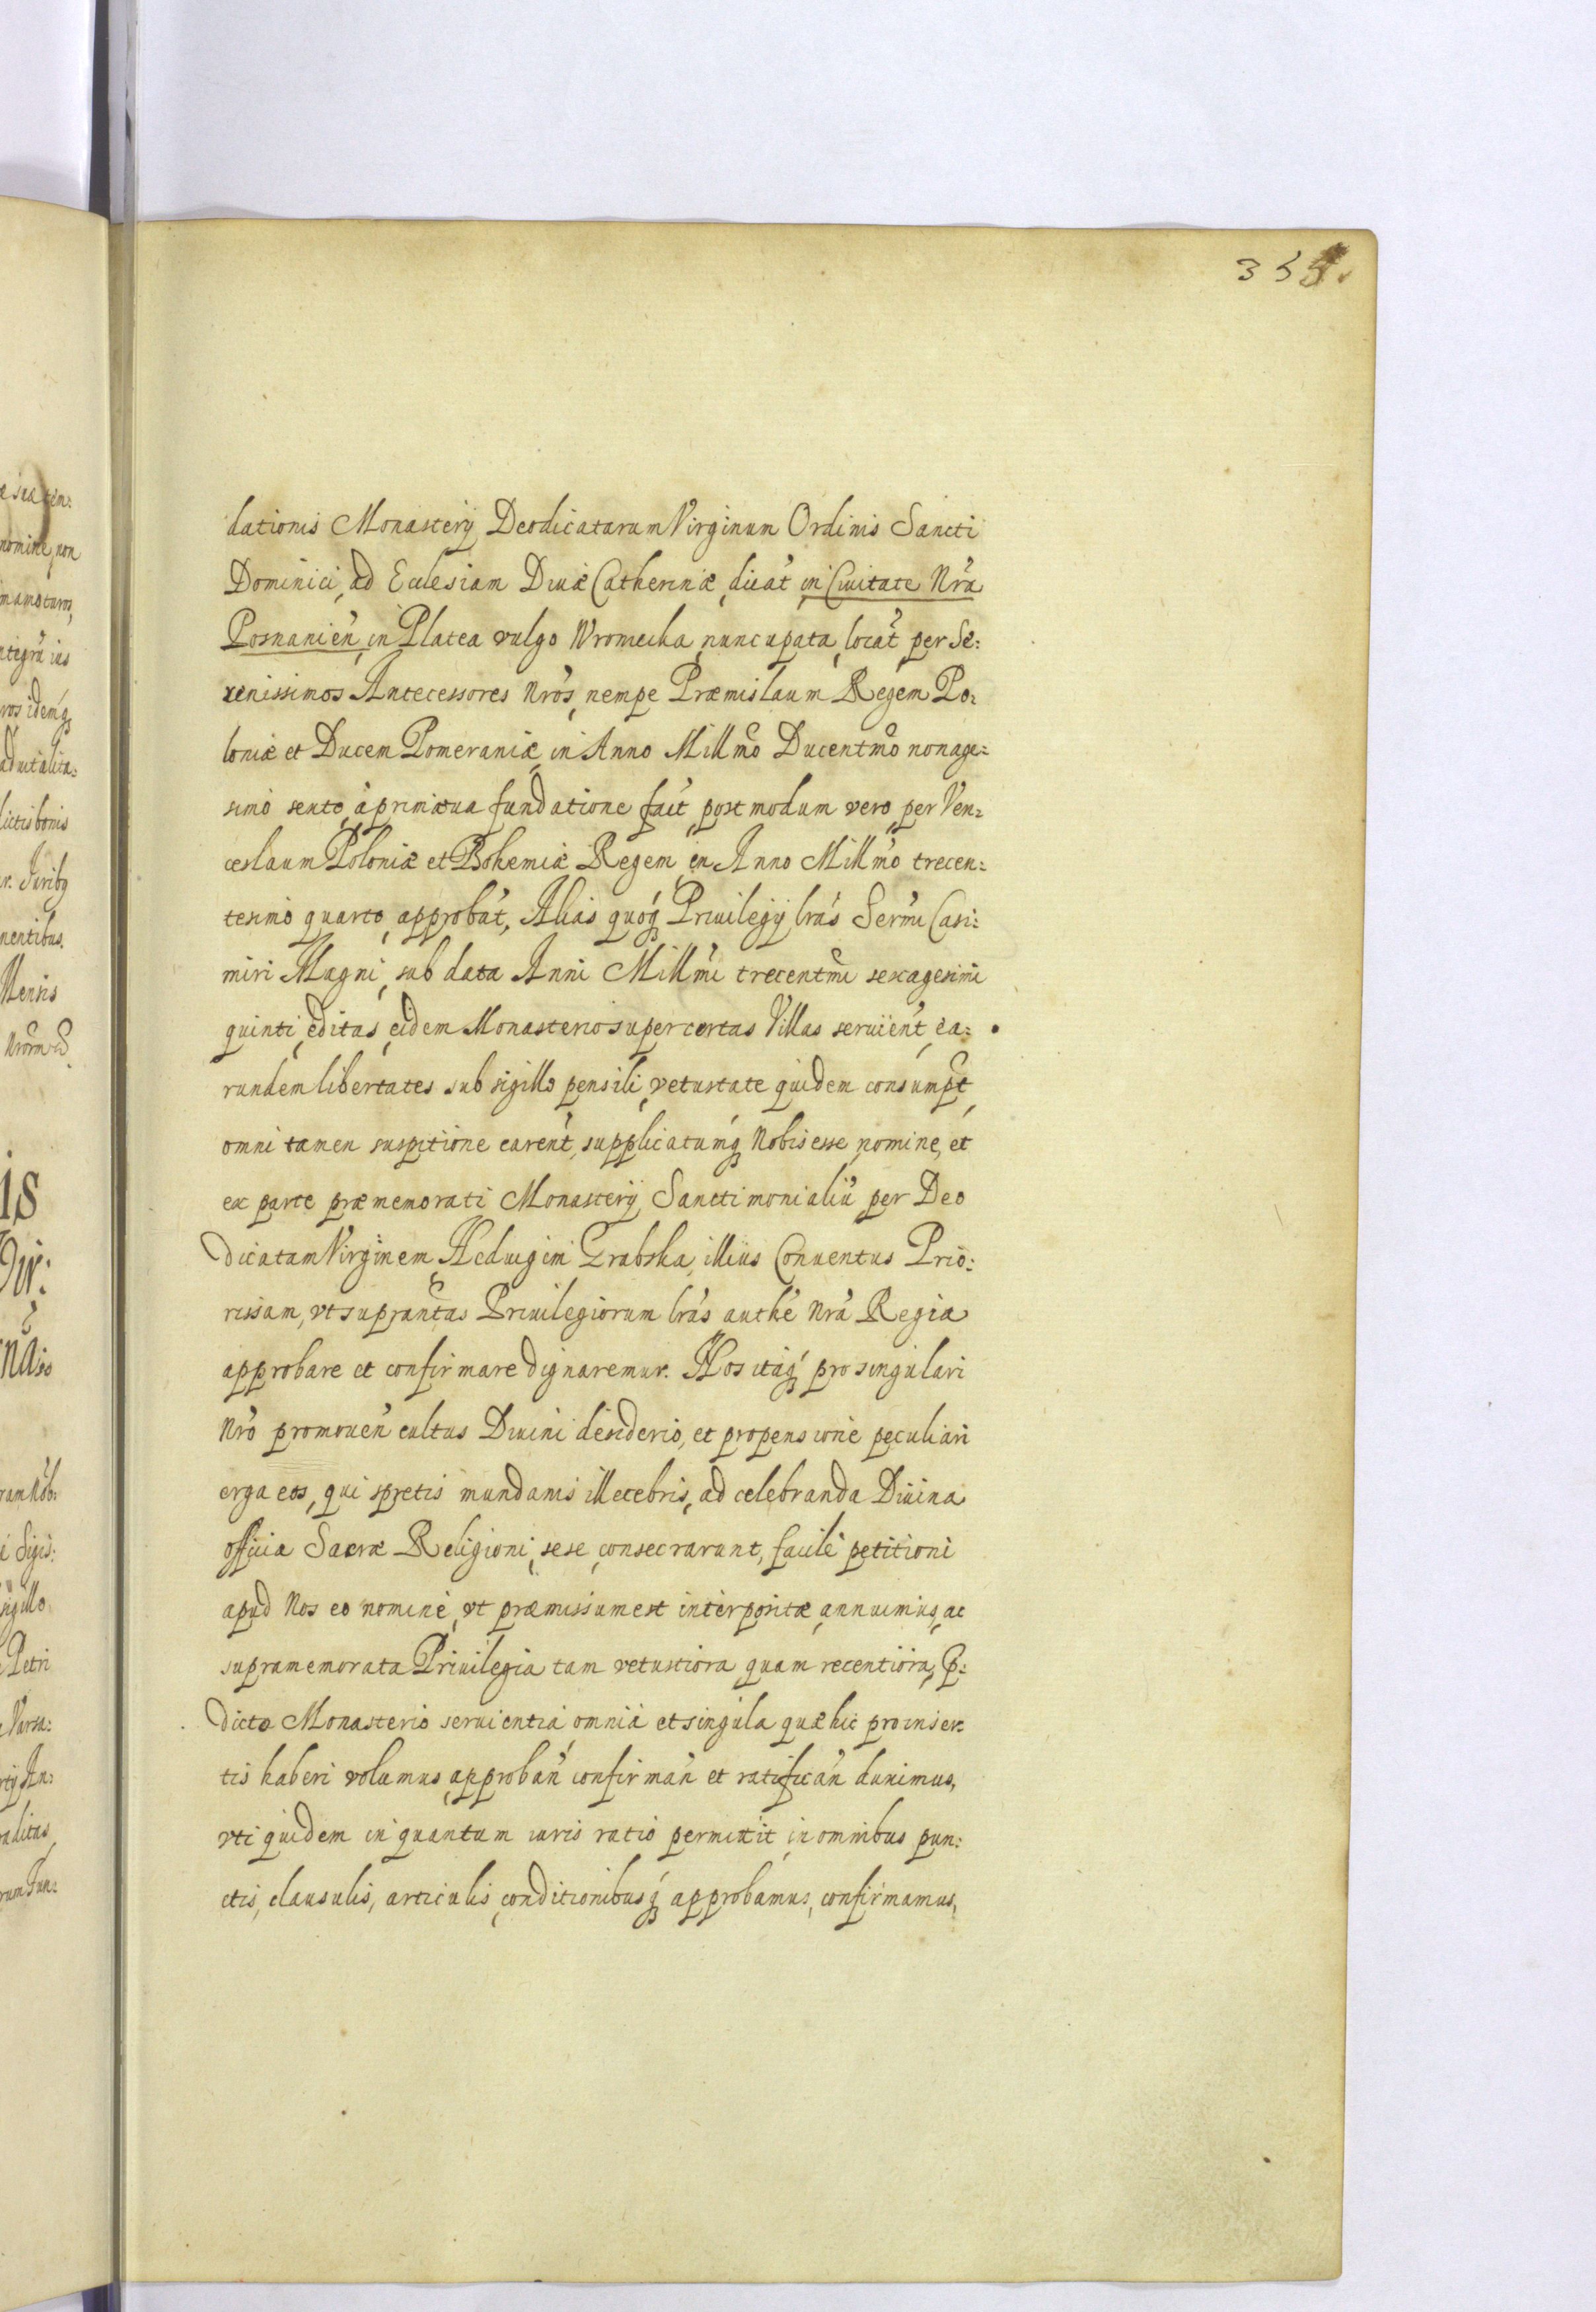 dationis Monasterÿ Deodicatarum Virginum Ordinis Sancti
Dominici, ad Ecclesiam Divæ Catherinæ, dicat̃, in Civitate Nr̃a
Posnanien̄, in Platea vulgo Wroniecka, nuncupata, locat̃ per Se:
renissimos Antecessores Nr̃os, nempe Præmislaum Regem Po:
loniæ et Ducem Pomeraniæ, in Anno Mill̃mo Ducent̃mo nonage:
simo sexto, à primæua fundatione fact̃, post modum vero, per Ven:
ceslaum Poloniæ et Bohemiæ Regem, in Anno Mill̃mo trecen:
tesimo quarto, approbat̃, Alias quoq́ Priuilegÿ lr̃as Ser̃mi Casi:
miri Magni, sub data Anni Mill̃mi trecent̃mi sexagesimi
quinti, editas, eidem Monasterio super certas Villas seruient̃, ea:
rundem libertates sub sigillo pensili, vetustate quidem consumpt̃,
omni tamen suspitione carent̃, supplicatumq́ Nobis esse, nomine, et
ex parte præmemorati Monasterÿ Sanctimonialiũ per Deo
dicatam Virginem, Hedvigim Grabska, illius Conuentus Prio:
rissam, vt supran̄tas Priuilegiorum lr̃as auth̃e Nr̃a Regia
approbare et confirmare dignaremur. Nos itaq́ pro singulari
Nr̃o promouen̄ cultus Diuini desiderio, et propensione peculiari
erga eos, qui spretis mundanis illecebris, ad celebranda Diuina
officia Sacræ Religioni, sese, consecrarunt, facilè petitioni
apud Nos eo nomine, vt præmissum est interpositæ, annuimus, ac
supramemorata Priuilegia tam vetustiora quam recentiora, p̱:
dicto Monasterio seruientia, omnia et singula quæ hic pro inser:
tis haberi volumus, approban̄ confirman̄ et ratifican̄ duximus,
vti quidem in quantum iuris ratio permittit, in omnibus pun:
ctis, clausulis, articulis, conditionibusq́ approbamus, confirmamus,